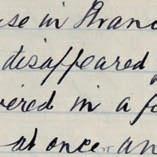 use in Stran
disappeared
ered in a f
at once an